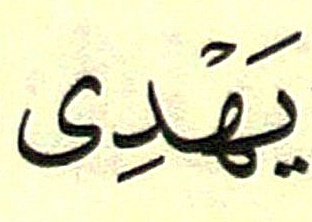 يَهْدِى